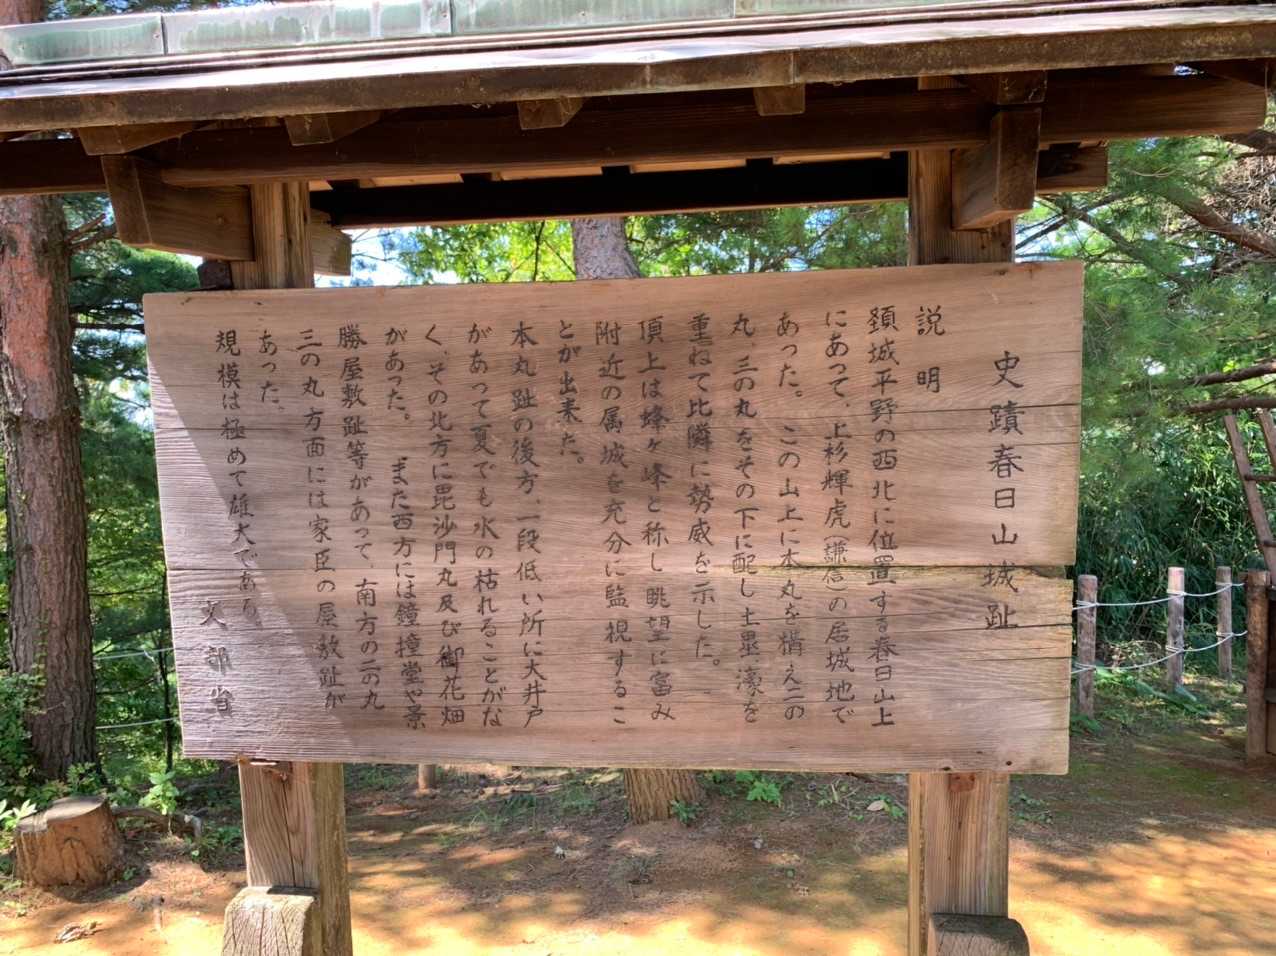 史蹟春日山城趾
説明
頚城平野の西北に位置する春日山上
にあって、上杉輝虎(謙信)の居城地で
あった。この山上に本丸を構え二の
丸、三の丸をその下に配し土塁濠を
重ねて比隣に勢威を示した。
頂上は蜂ヶ峰と称し眺望に富み
附近の属城を充分に監視するこ
とが出来た。
本丸趾の後方、一段低い所に大井戸
があって夏でも水の枯れることがな
く、その北方に毘沙門丸及び御花畑
があった。また西方には鐘撞堂や景
勝屋敷趾等があって、南方の二の丸
三の丸方面には家臣の屋敷趾が
あった。
規模は極めて雄大である。
文部省